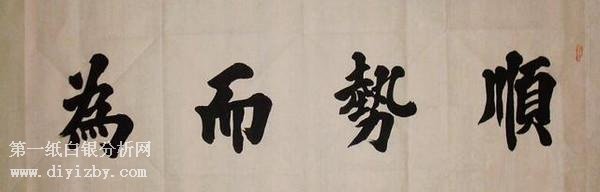 順勢而為
第一纸白银分析网
www.diyizby.com